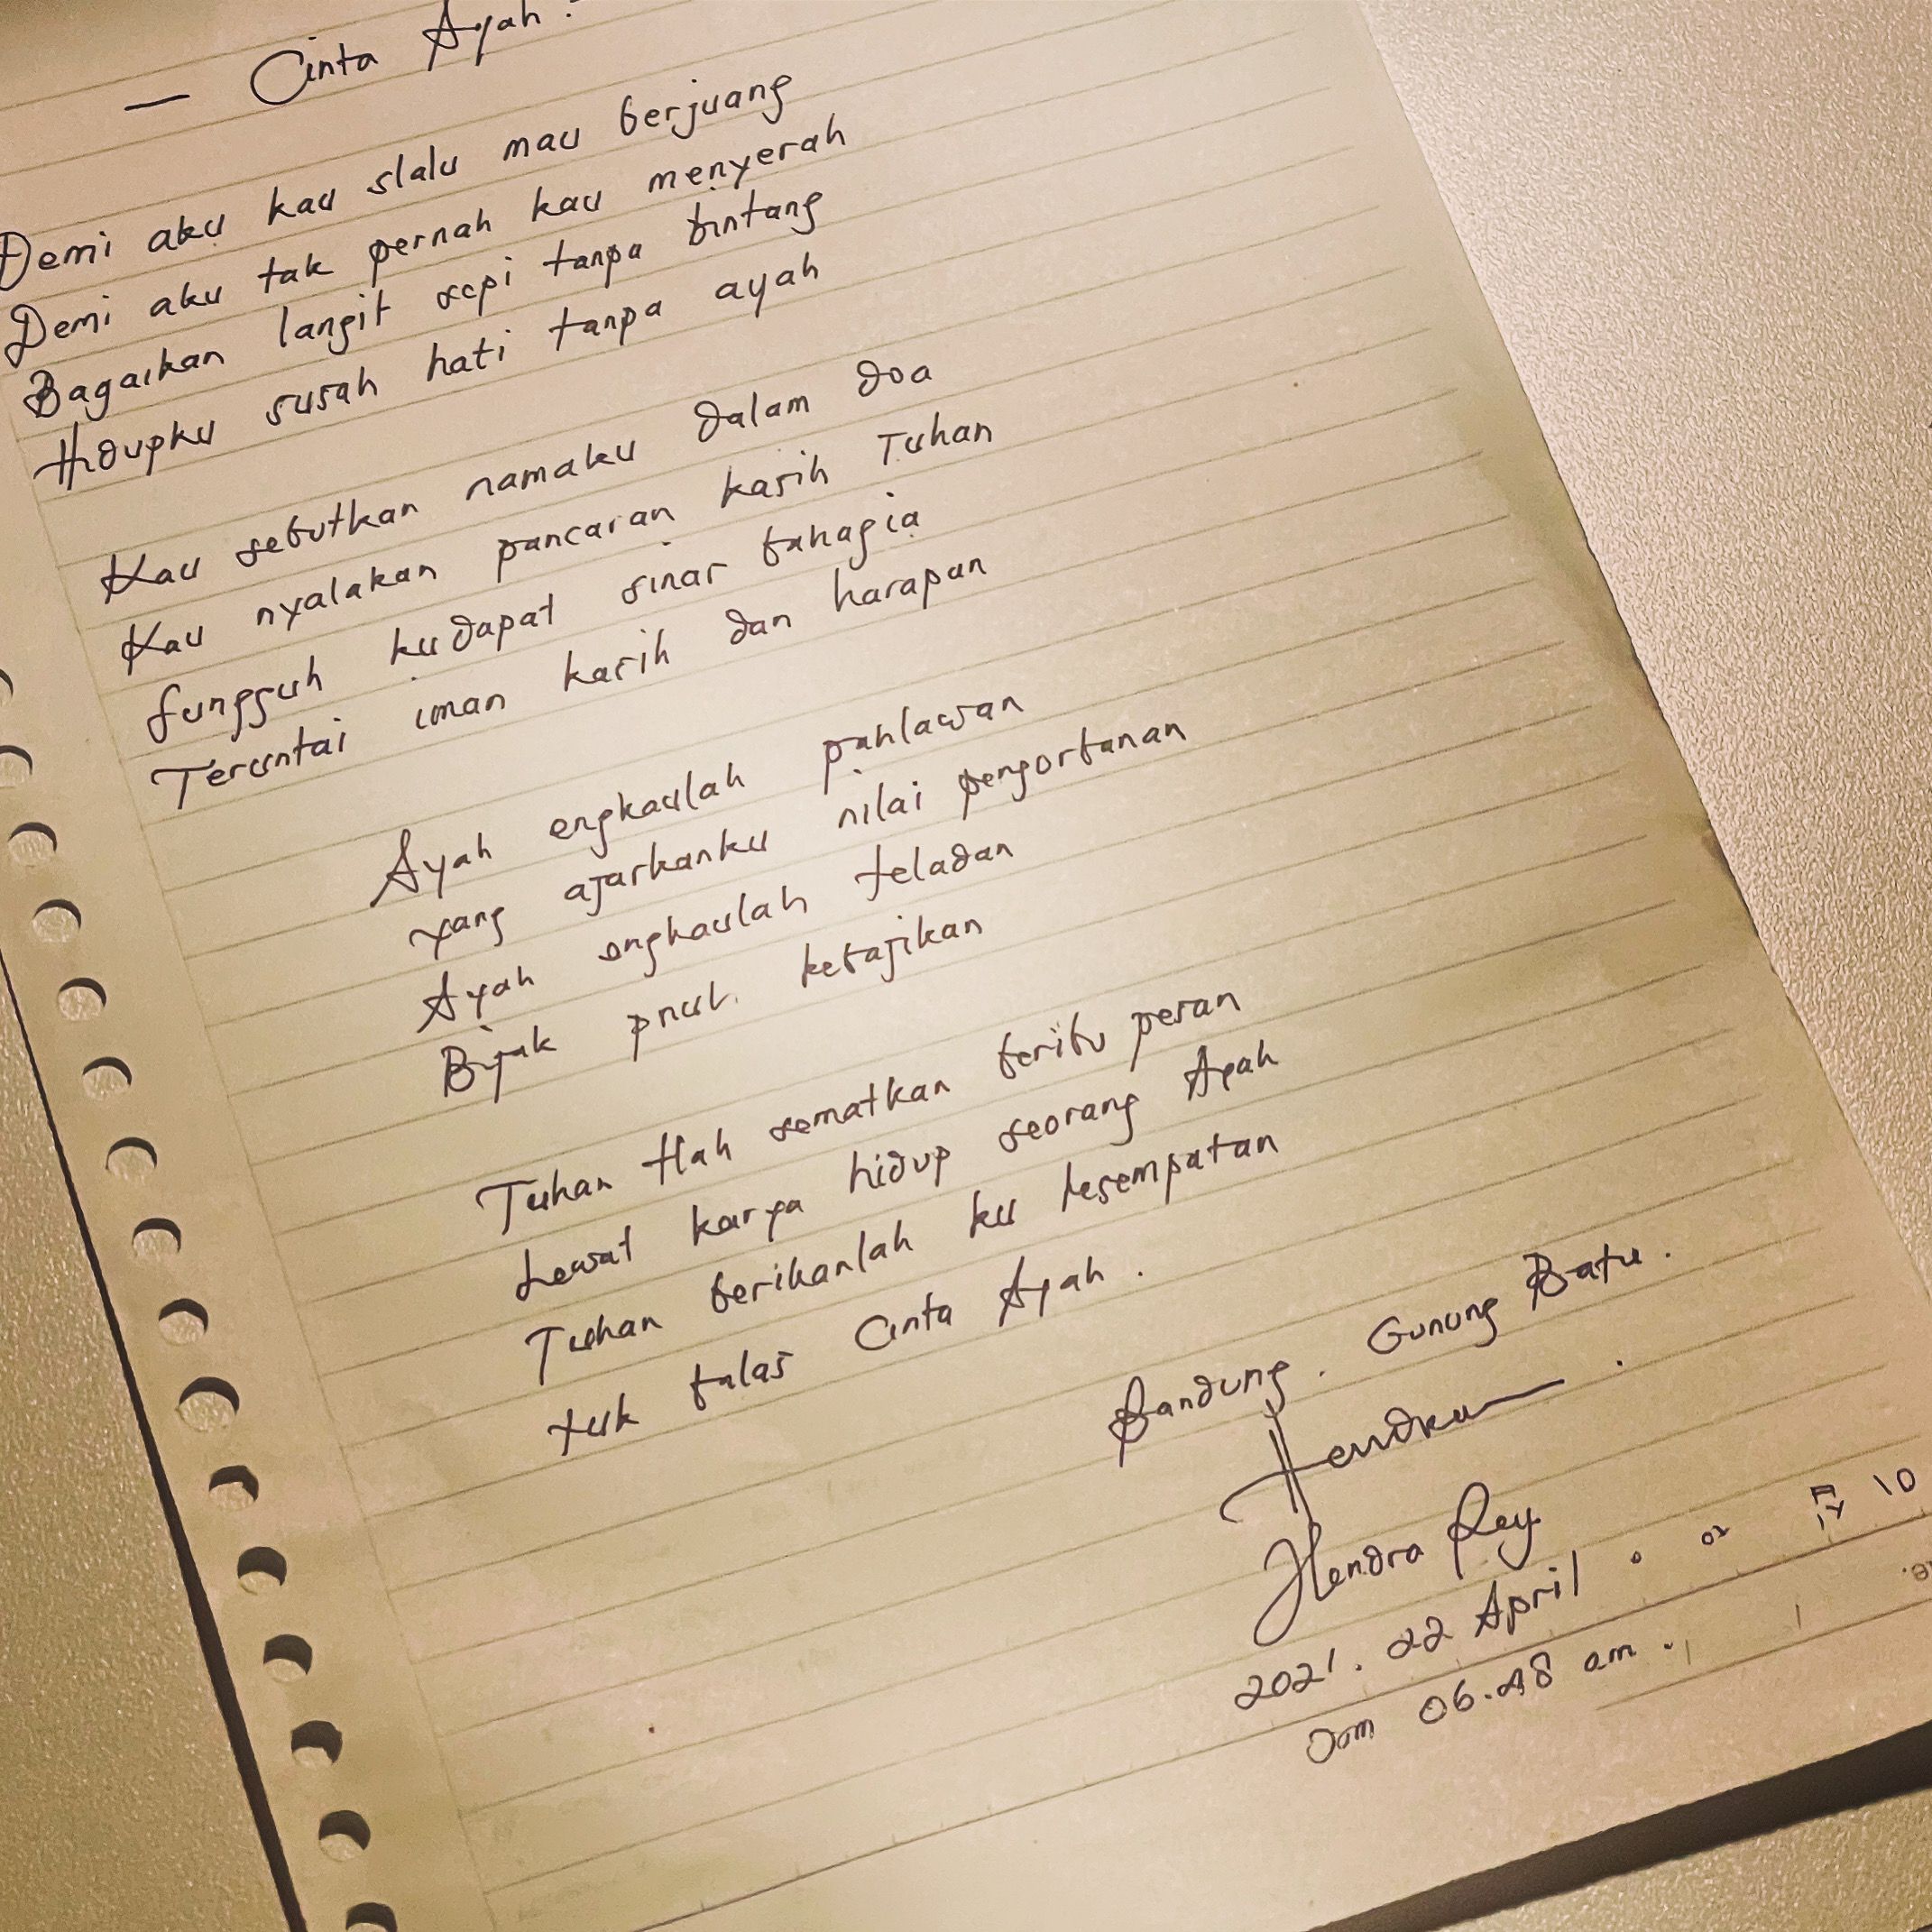 — Cinta Ayah.
Demi aku kau slalu mau berjuang
Demi aku tak pernah kau menyerah
Bagaikan langit sepi tanpa bintang
Hidupku susah hati tanpa ayah
Kau sebutkan namaku dalam doa
Kau nyalakan pancaran kasih Tuhan
sungguh ku dapat sinar bahagia
Teruntai iman kasih dan harapan
Ayah engkaulah pahlawan
yang ajarkanku nilai pengorbanan
Ayah engkaulah teladan
Bijak pnuh kebajikan
Tuhan tlah sematkan beribu peran
Lewat karya hidup seorang Ayah
Tuhan berikanlah ku kesempatan
tuk balas Cinta Ayah.
Bandung. Gunung Batu.
Hendra Rey
2021. 22 April
Jam 06.48 am.